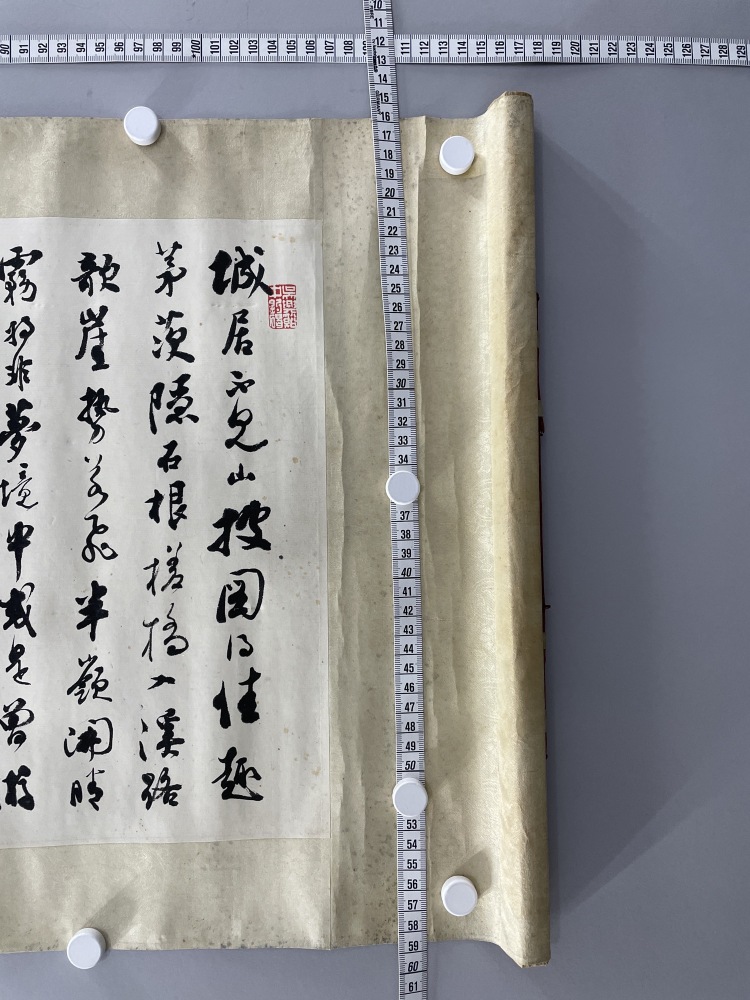 90 91 92 93 94 95 96 97 98 99 100 101 102 103 104 105 106 107 108 111 112 113 114 115 116 117 118 119 120 121 122 123 124 125 126 127 128 129
10 11 12 13 14 15 16 17 18 19 20 21 22 23 24 25 26 27 28 29 30 31 32 33 34 37 38 39 40 41 42 43 44 45 46 47 48 49 50 53 54 55 56 57 58 59 60 61
城居不見山披圖得佳趣
茅茨隱石根槎橋入溪路
欹崖勢若飛半嶺開晴
霧將非夢境中或是曾